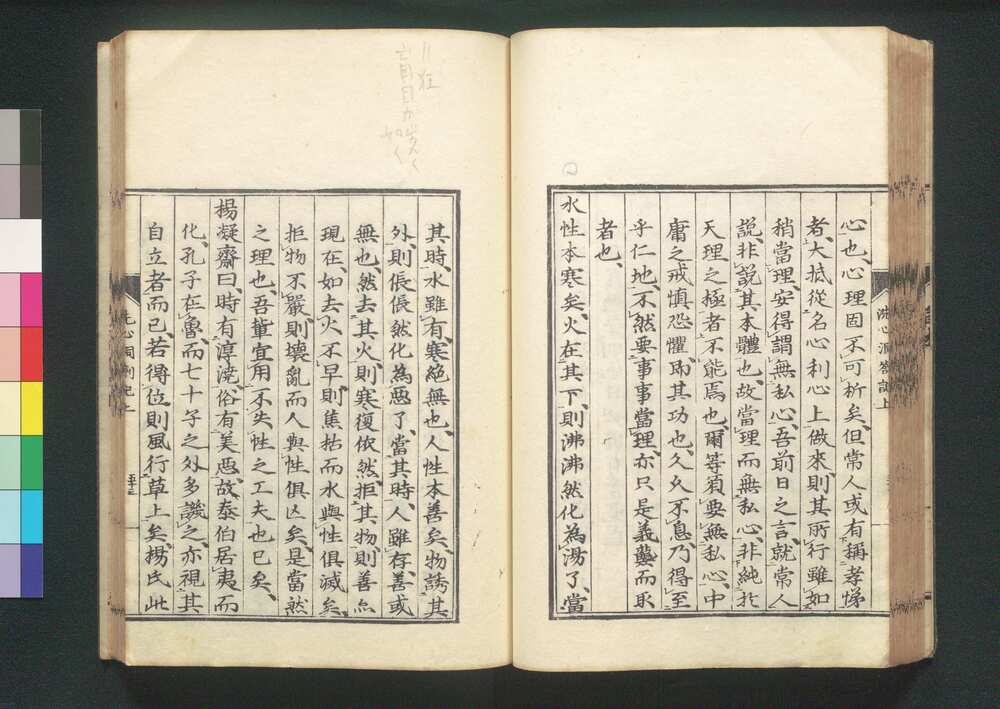 心也、心理固不可析矣、但常人或有稱孝悌
者、大抵從名心利心上做來、則其所行雖如
稍當理、安得謂無私心、吾前日之言就常人
説、非説其本體也、故當理而無私心、非純於
天理之極者不能焉也、爾等須要無私心、中
庸之戒愼恐懼、即其功也、久久不息、乃得至
乎仁地、不然要事事當理、亦只是義襲而取
者也、
水性本寒矣、火在其下、則沸沸然化為湯了、當
洗心洞劄記上
其時、水雖有、寒絶無也、人性本善矣、物誘其
外、則倀倀然化為惡了、當其時、人雖存、善或
無也、然去其火、則寒復依然、拒其物、則善亦
現在、如去火不早、則焦枯而水與性俱滅矣、
拒物不嚴、則壞亂而人與性俱凶矣、是當然
之理也、吾輩宜用不失性之工夫也已矣、
楊凝齋曰、時有淳澆、俗有美惡、故泰伯居夷而
化、孔子在魯、而七十子之外多譏之、亦視其
自立者而已、若得位則風行草上矣、楊氏此
洗心洞劄記上